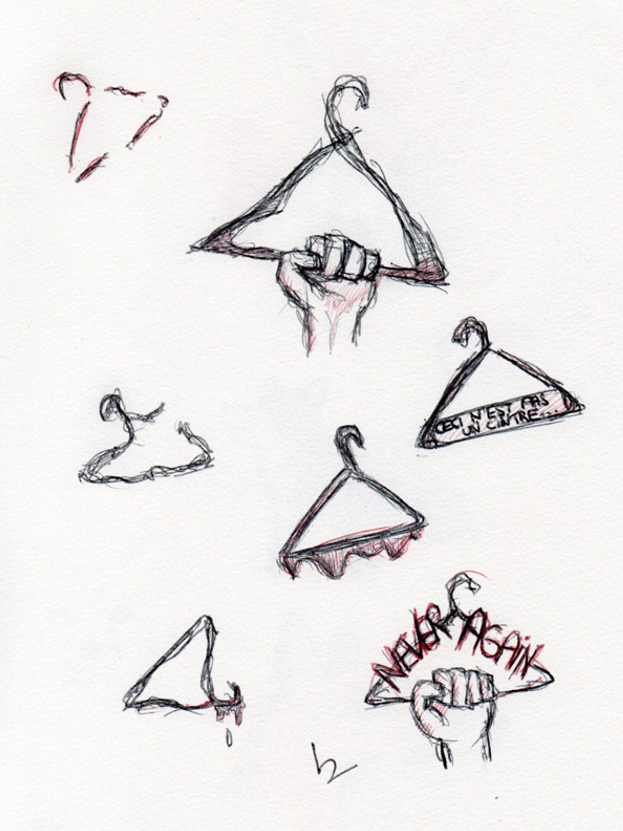 CECI N'EST PAS
UN CINTRE...
NEVER AGAIN